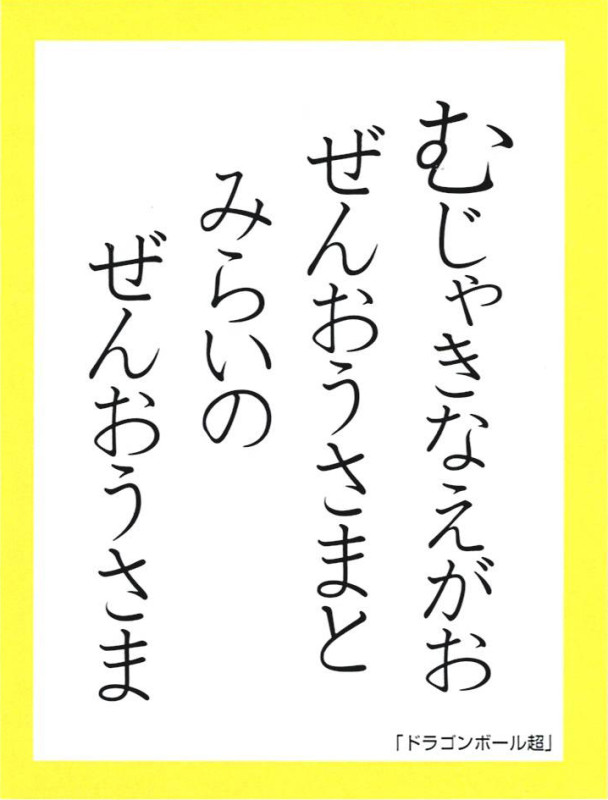 むじゃきなえがお
ぜんおうさまと
みらいの
ぜんおうさま
「ドラゴンボール超」